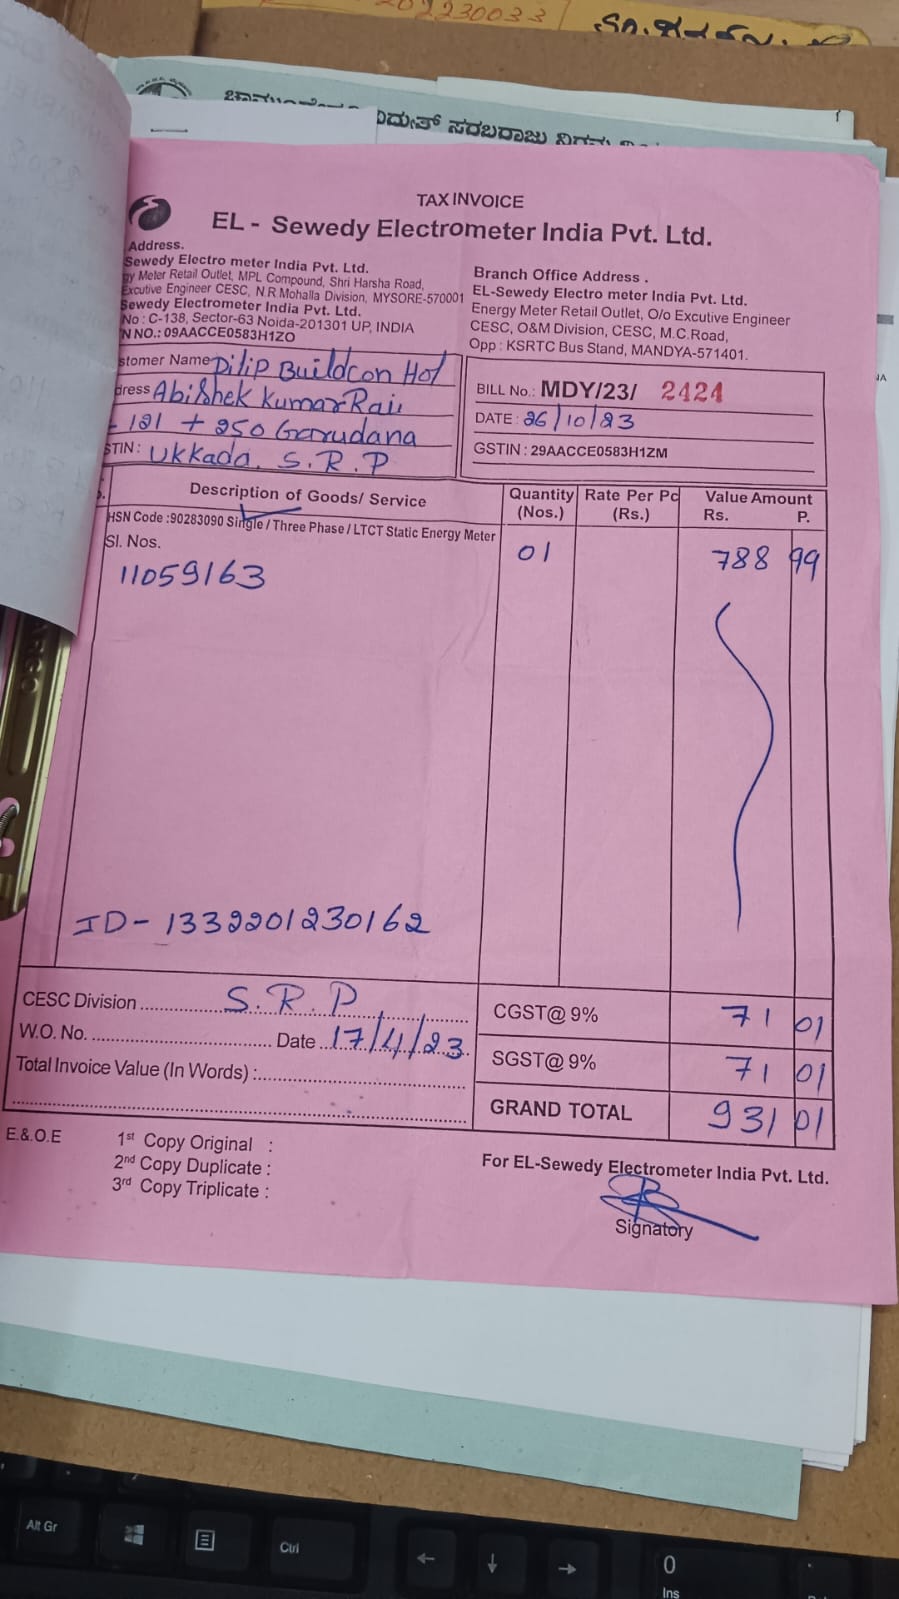 202230033
ವಿದ್ಯುತ್ ಸರಬರಾಜು ನಿಗಮ
TAX INVOICE
EL - Sewedy Electrometer India Pvt. Ltd.
Address.
Sewedy Electro meter India Pvt. Ltd.
gy Meter Retail Outlet, MPL Compound, Shri Harsha Road,
Excutive Engineer CESC, N.R Mohalla Division, MYSORE-570001
Sewedy Electrometer India Pvt. Ltd.
No : C-138, Sector-63 Noida-201301 UP, INDIA
N NO.: 09AACCE0583H1ZO
Branch Office Address .
EL-Sewedy Electro meter India Pvt. Ltd.
Energy Meter Retail Outlet, O/o Excutive Engineer
CESC, O&M Division, CESC, M.C.Road,
Opp : KSRTC Bus Stand, MANDYA-571401.
stomer Name Dilip Buildcon Hot
dress Abishek Kumar Rai
- 121 + 250 Garudana
STIN : Ukkada. S.R.P
BILL No.: MDY/23/ 2424
DATE : 26/10/23
GSTIN : 29AACCE0583H1ZM
Description of Goods/ Service
Quantity (Nos.)
Rate Per Pc (Rs.)
Value Amount
Rs. P.
HSN Code :90283090 Single / Three Phase / LTCT Static Energy Meter
Sl. Nos.
01 788 99
11059163
ID- 1332201230162
CESC Division S.R.P
W.O. No. Date 17/4/23
Total Invoice Value (In Words) :
CGST@ 9% 71 01
SGST@ 9% 71 01
GRAND TOTAL 931 01
E.& O.E
1st Copy Original :
2nd Copy Duplicate :
3rd Copy Triplicate :
For EL-Sewedy Electrometer India Pvt. Ltd.
Signatory
CARGO
Alt Gr
Ctrl
0
Ins